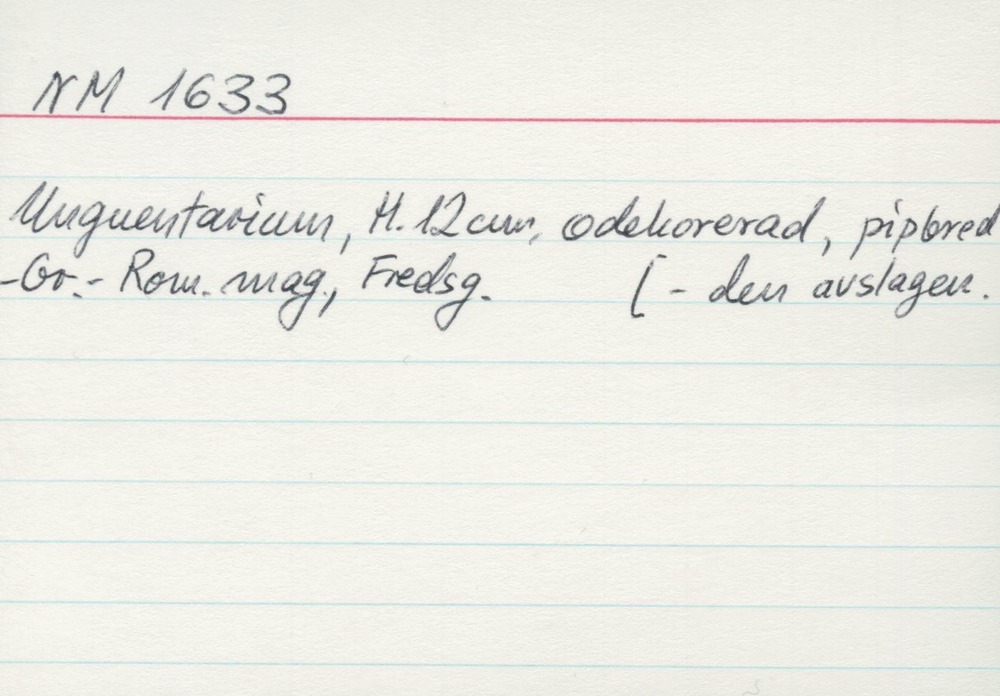 NM 1633
Unguentarium, H. 12 cm, odekorerad, pipbred
-Gr.- Rom. mag., Fredsg. [- den avslagen.